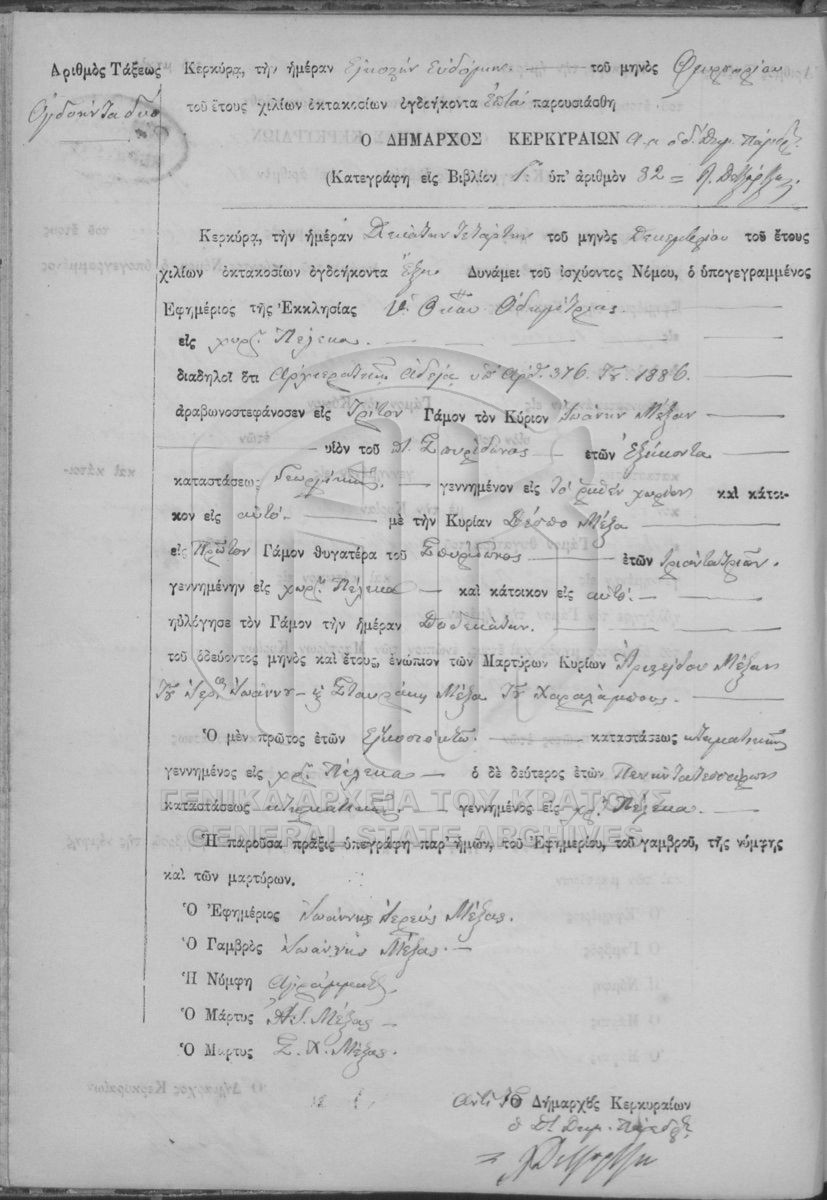 Ἀριθμὸς Τάξεως
Ὀγδοήντα δύο
Κερκύρα, τὴν ἡμέραν Εἰκοστὴν Ευδόμην τοῦ μηνὸς Φευρουαρίου
τοῦ ἔτους χιλίων ὀκτακοσίων ὀγδοήκοντα ἑπτά παρουσιάσθη
Ο ΔΗΜΑΡΧΟΣ ΚΕΡΚΥΡΑΙΩΝ
(Κατεγράφη εἰς Βιβλίον Γ. ὑπ' ἀριθμὸν 82 =
Κερκύρα, τὴν ἡμέραν Δεκάτην τετάρτην τοῦ μηνὸς Δεκεμβρίου τοῦ ἔτους
χιλίων ὀκτακοσίων ὀγδοήκοντα ἕξη Δυνάμει τοῦ ἰσχύοντος Νόμου, ὁ ὑπογεγραμμένος
Ἐφημέριος τῆς Ἐκκλησίας Ὁδηγήτριας
εἰς χωρ. Πέλεκα
διαδηλοῖ ὅτι Αρχιερατικῇ ἀδείᾳ ὑπ' Ἀρθ. 376. Τ. 1886.
ἀραβωνοστεφάνοσεν εἰς Τρίτον Γάμον τὸν Κύριον Ἰωάννην Μέξαν
υἱὸν τοῦ π. Σπυρίδωνος ἐτῶν Ἑξήκοντα
καταστάσεως Γεωργικῆς γεννημένον εἰς τὸ ῥηθὲν χωρίον καὶ κάτοι-
κον εἰς αὐτό. μὲ τὴν Κυρίαν Δέσπο Μέξα
εἰς Πρῶτον Γάμον θυγατέρα τοῦ Σπυρίδωνος ἐτῶν τριάντα τριῶν.
γεννημένην εἰς χωρ. Πέλεκα καὶ κάτοικον εἰς αὐτό.
ηὐλόγησε τὸν Γάμον τὴν ἡμέραν Δωδεκάτην.
τοῦ ὁδεύοντος μηνὸς καὶ ἔτους, ἐνώπιον τῶν Μαρτύρων Κυρίων Ἀριστείδου Μέξα
Τοῦ Ἱερ. Ἰωάννου - κ Σταυράκη Μέξα Τοῦ Χαραλάμπους.
Ὁ μὲν πρῶτος ἐτῶν Εἰκοσιοκτώ. καταστάσεως κτηματικῆς
γεννημένος εἰς χωρ. Πέλεκα ὁ δὲ δεύτερος ἐτῶν Πενήντα τεσσάρων
καταστάσεως κτηματικῆς γεννημένος εἰς χωρ. Πέλεκα
ΓΕΝΙΚΑ ΑΡΧΕΙΑ ΤΟΥ ΚΡΑΤΟΥΣ
GENERAL STATE ARCHIVES
Ἡ παροῦσα πρᾶξις ὑπεγράφη παρ' ἡμῶν, τοῦ Ἐφημερίου, τοῦ γαμβροῦ, τῆς νύμφης
καὶ τῶν μαρτύρων.
Ὁ Ἐφημέριος Ἰωάννης Ἱερεύς Μέξας.
Ὁ Γαμβρὸς Ἰωάννης Μέξας.
Ἡ Νύμφη Ἀγράμματη
Ὁ Μάρτυς Μέξας
Ὁ Μαρτυς Σ. Χ. Μέξας.
Ἀντί Ὁ Δήμαρχος Κερκυραίων